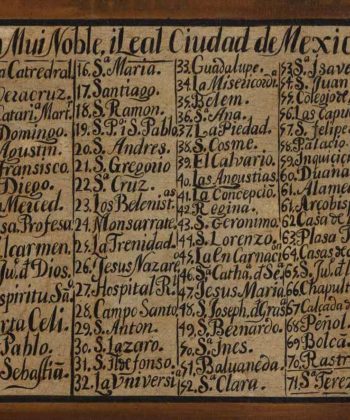 Mui Noble, i Leal Ciudad de Mexic
a Catredral
eracruz.
atari.ª Mart.
Domingo.
Agustin.
fransisco.
Diego.
Merced.
sa Profesa
lcarmen.
Ju.º d. Dios.
spiritu Sã.
rta Celi.
Pablo.
Sebastiã.
16. Sª. Maria.
17. Santiago.
18. S. Ramon.
19. S. P. i S. Pablo
20. S. Andres.
21. S. Gregorio
22. Sª. Cruz.
23. Los Belemist.as
24. Monsarrate.
25. La Trenidad.
26. Jesus Nazare.
27. Hospital R.l
28. Campo Santo
29. S. Anton.
30. S. Lazaro.
31. S. Ildefonso.
32. La Vniversi
33. Guadalupe.
34. La Misericordi.ª
35. Belem.
36. Sª. Ana.
37. La Piedad.
38. S. Cosme.
39. El Calvario.
40. Las Angustias.
41. La Concepciõ.
42. Regina.
43. S. Geronimo.
44. S. Lorenzo.
45. La en Carnaciõ
46. Sª. Catha. d. Se.
47. Jesus Maria
48. S. Joseph. d. Gras
49. S. Bernardo.
50. Sª. Ines.
51. Baluaneda.
52. Sª. Clara.
53. Sª. Isave
54. S. Juan
55. Colegio d
56. Las Capu
57. S. felipe
58. Palacio
59. Inquicic
60. Duana
61. Alame
61. Arcobis
62. Casa de
63. Plasa
64. Casas d
65. S. Ju.º d.
66. Chapult
67. Calcada
68. Peñol.
69. Bolca
70. Rastr
71. Sª. Terez